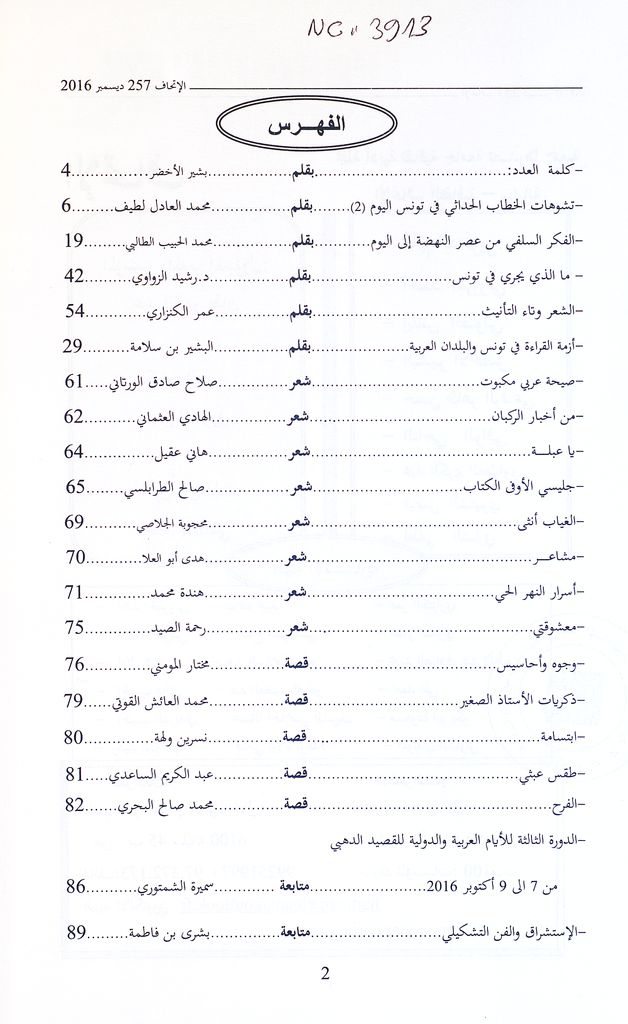 NC " 3913
الإتحاف 257 ديسمبر 2016
الفهـــرس
-كلمة العدد:..........بقلم..........بشير الأخضر..........4
-تشوهات الخطاب الحداثي في تونس اليوم (2)..........بقلم..........محمد العادل لطيف..........6
-الفكر السلفي من عصر النهضة إلى اليوم..........بقلم..........محمد الحبيب الطالبي..........19
- ما الذي يجري في تونس..........بقلم..........د.رشيد الزواوي..........42
-الشعر وتاء التأنيث..........بقلم..........عمر الكنزاري..........54
-أزمة القراءة في تونس والبلدان العربية..........بقلم..........البشير بن سلامة..........29
-صيحة عربي مكبوت..........شعر..........صلاح صادق الورتاني..........61
-من أخبار الركبان..........شعر..........الهادي العثماني..........62
-يا عبلـــة..........شعر..........هاني عقيل..........64
-جليسي الأوفى الكتاب..........شعر..........صالح الطرابلسي..........65
-الغياب أنثى..........شعر..........محجوبة الجلاصي..........69
-مشاعـــر..........شعر..........هدى أبو العلا..........70
-أسرار النهر الحي..........شعر..........هندة محمد..........71
-معشوقتي..........شعر..........رحمة الصيد..........75
-وجوه وأحاسيس..........قصة..........مختار المومني..........76
-ذكريات الأستاذ الصغير..........قصة..........محمد العائش القوتي..........79
-ابتسامة..........قصة..........نسرين ولهة..........80
-طقس عبثي..........قصة..........عبد الكريم الساعدي..........81
-الفرح..........قصة..........محمد صالح البحري..........82
-الدورة الثالثة للأيام العربية والدولية للقصيد الذهبي
من 7 الى 9 أكتوبر 2016..........متابعة..........سميرة الشمتوري..........86
-الإستشراق والفن التشكيلي..........متابعة..........بشرى بن فاطمة..........89
2